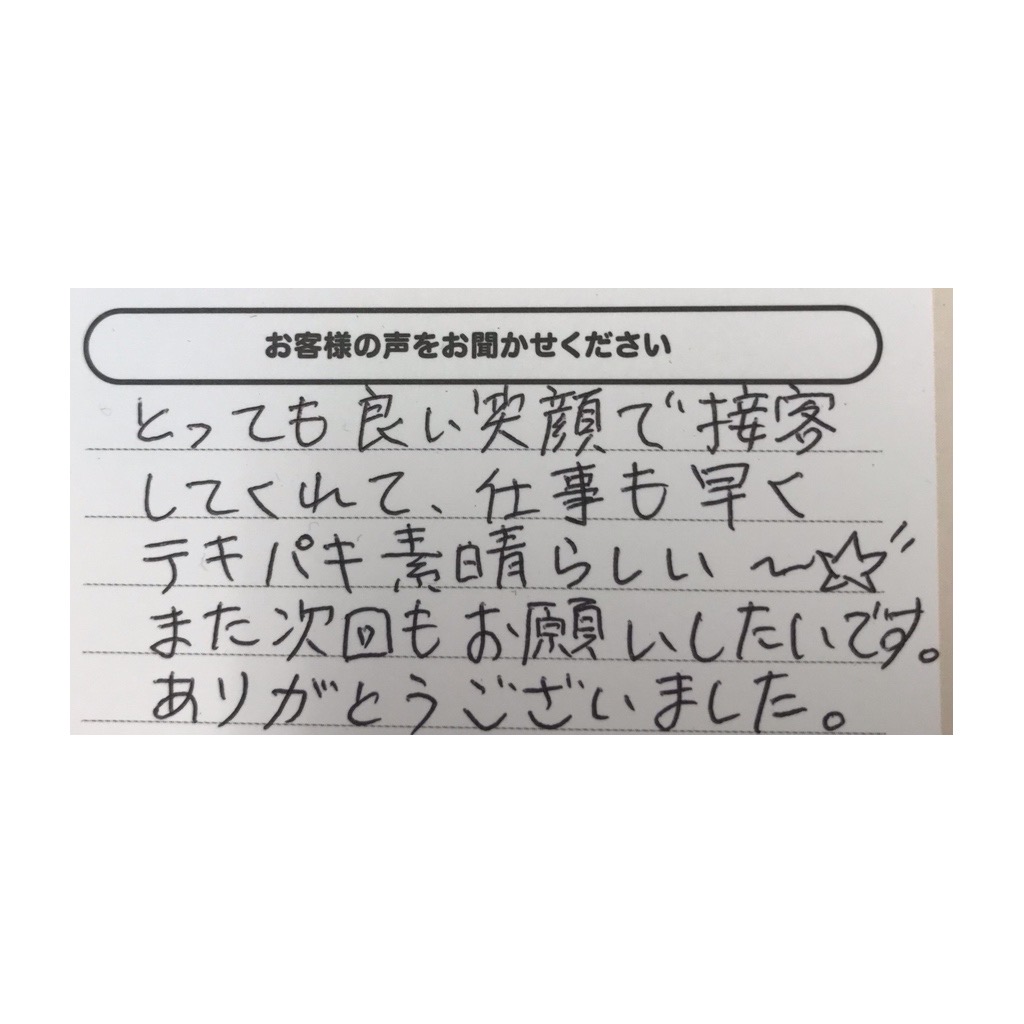 お客様の声をお聞かせください
とっても良い笑顔で接客
してくれて、仕事も早く
テキパキ素晴らしい〜☆"
また次回もお願いしたいです。
ありがとうございました。